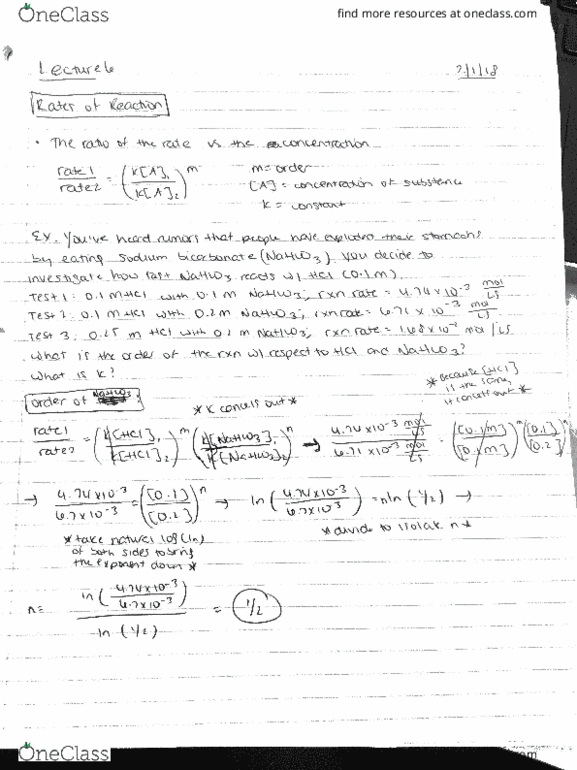 OneClass
find more resources at oneclass.com
Lecture 6
2/1/18
Rates of Reaction
• The ratio of the rate vs the concentration
rate 1 / rate 2 = (k[A]1 / k[A]2)^m
m = order
[A] = concentration of substance
k = constant
Ex. You've heard rumors that people have exploded their stomachs
by eating sodium bicarbonate (NaHCO3). You decide to
investigate how fast NaHCO3 reacts w/ HCl (0.1 m)
Test 1: 0.1 m HCl with 0.1 m NaHCO3; rxn rate = 4.74 x 10^-3 mol/LS
Test 2: 0.1 m HCl with 0.2 m NaHCO3; rxn rate = 6.71 x 10^-3 mol/LS
Test 3: 0.25 m HCl with 0.2 m NaHCO3; rxn rate = 1.68 x 10^-2 mol/LS
What is the order of the rxn w/ respect to HCl and NaHCO3?
What is k?
order of NaHCO3:
* K cancels out *
* Because [HCl]
is the same,
it cancels out *
rate 1 / rate 2 = (k[HCl]1 / k[HCl]2)^m (k[NaHCO3]1 / k[NaHCO3]2)^n → 4.74x10^-3 mol/LS / 6.71x10^-3 mol/LS = ([0.1m] / [0.1m])^m ([0.1] / [0.2])^n
→ 4.74x10^-3 / 6.7x10^-3 = ([0.1] / [0.2])^n → ln(4.74x10^-3 / 6.7x10^-3) = n ln(1/2) →
* take natural log (ln)
of both sides to bring
the exponent down *
* divide to isolate n *
n = ln(4.74x10^-3 / 6.7x10^-3) / ln(1/2) = 1/2
OneClass